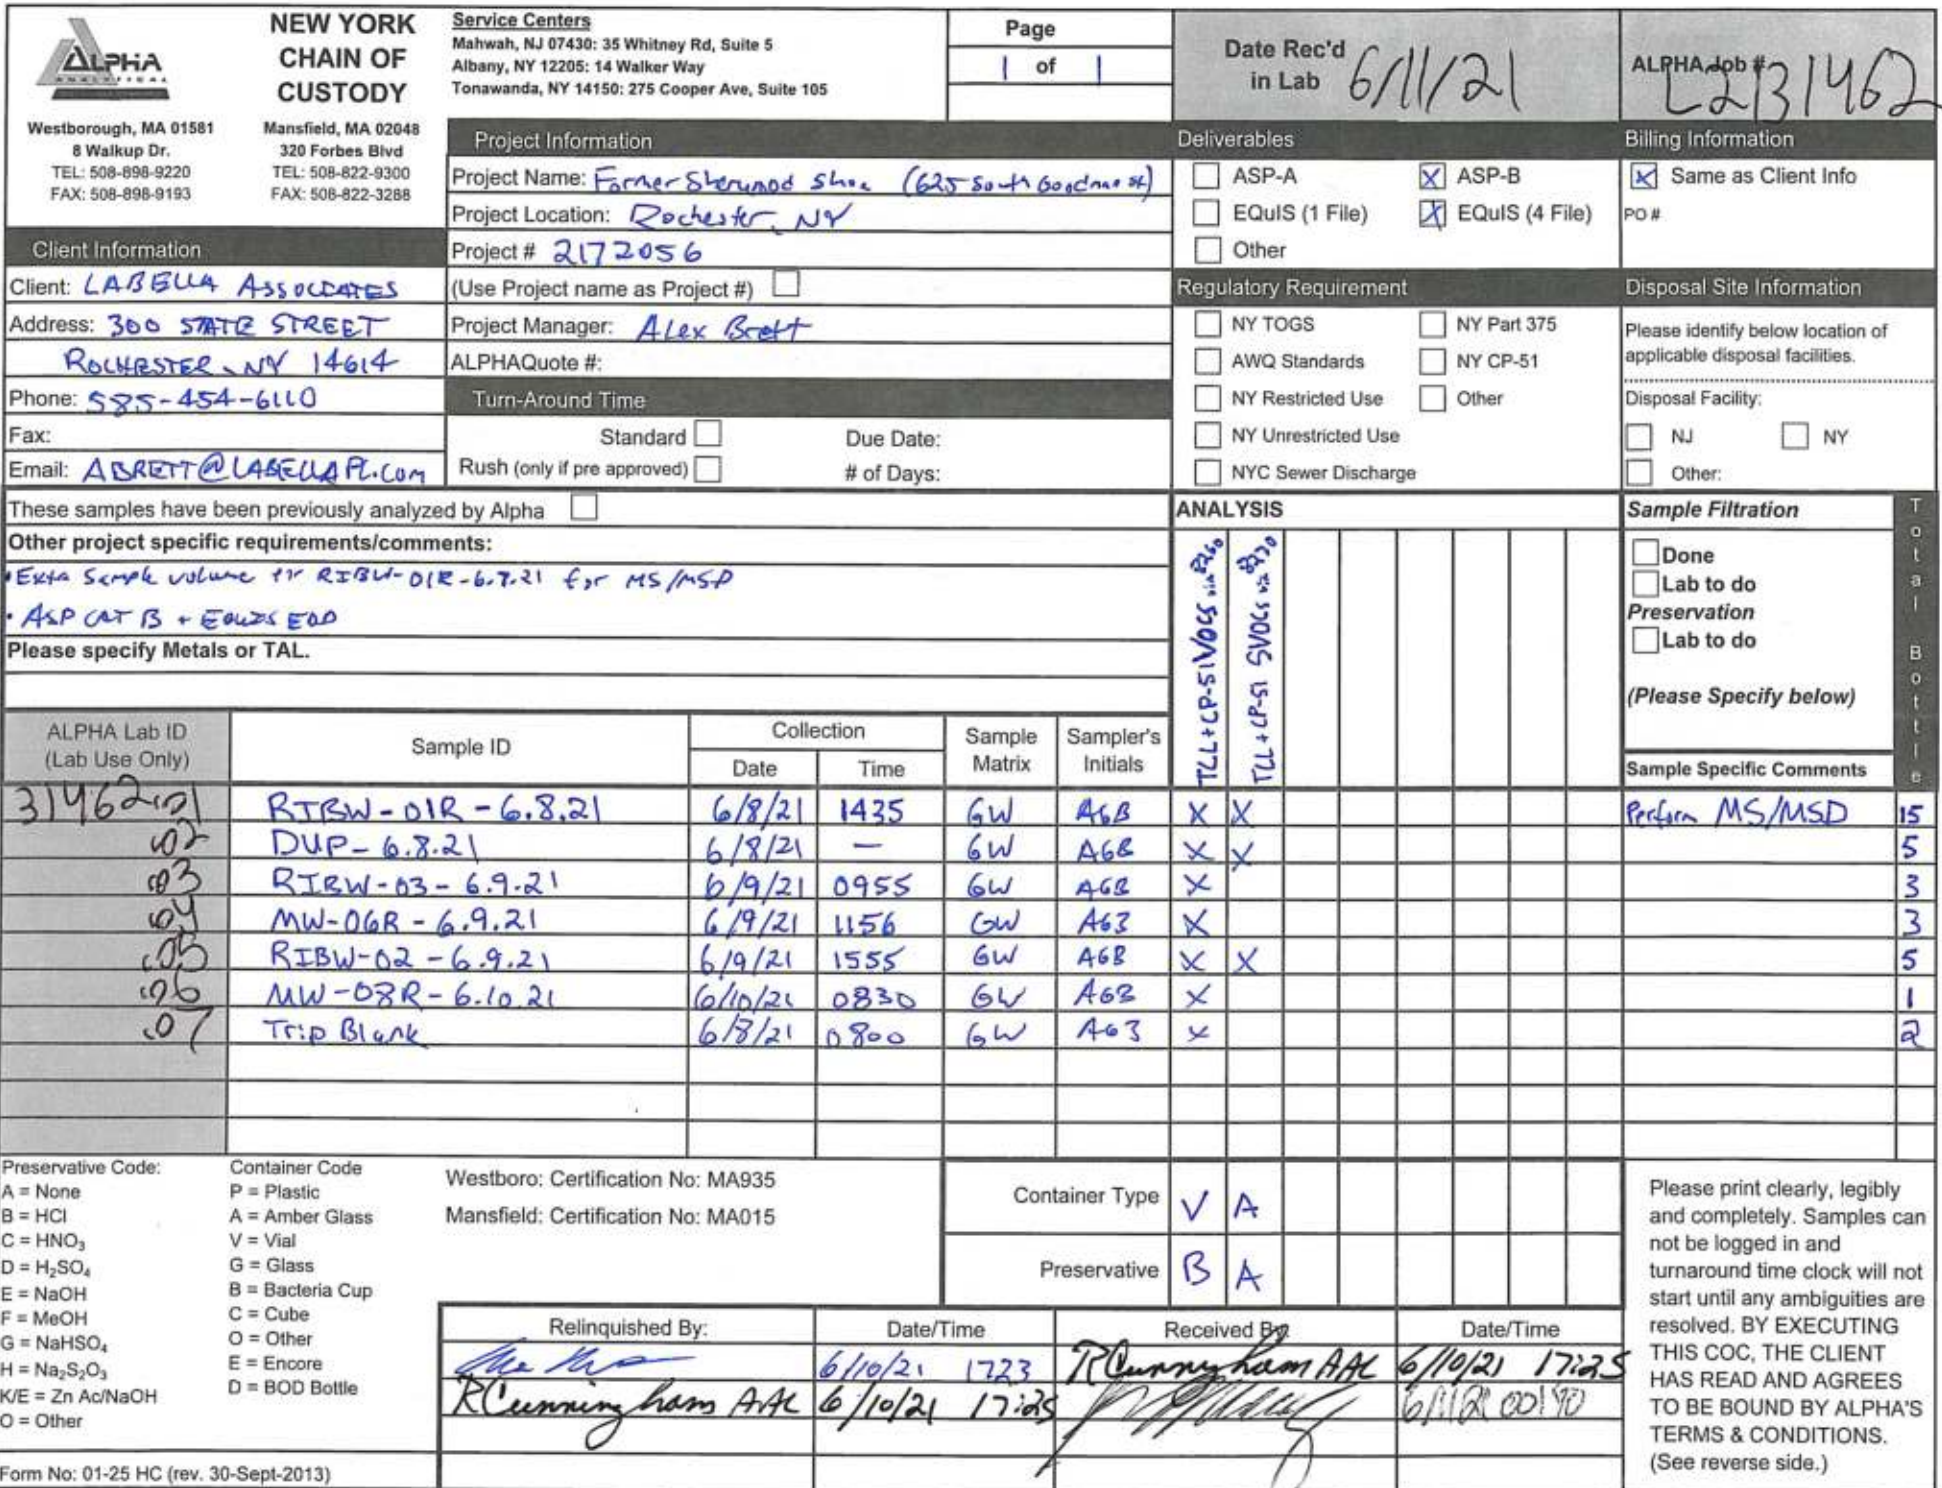 ALPHA
ANALYTICAL
NEW YORK
CHAIN OF
CUSTODY
Westborough, MA 01581
8 Walkup Dr.
TEL: 508-898-9220
FAX: 508-898-9193
Mansfield, MA 02048
320 Forbes Blvd
TEL: 508-822-9300
FAX: 508-822-3288
Service Centers
Mahwah, NJ 07430: 35 Whitney Rd, Suite 5
Albany, NY 12205: 14 Walker Way
Tonawanda, NY 14150: 275 Cooper Ave, Suite 105
Page
1 of 1
Date Rec'd
in Lab 6/11/21
ALPHA Job #
L2131462
Client Information
Client: LABELLA ASSOCIATES
Address: 300 STATE STREET
ROCHESTER, NY 14614
Phone: 585-454-6110
Fax:
Email: ABRETT@LABELLAPC.COM
Project Information
Project Name: Former Sherwood Shoe (625 South Goodman St)
Project Location: Rochester, NY
Project # 2172056
(Use Project name as Project #)
Project Manager: Alex Brett
ALPHAQuote #:
Turn-Around Time
Standard Due Date:
Rush (only if pre approved) # of Days:
Deliverables
ASP-A X ASP-B
EQuIS (1 File) X EQuIS (4 File)
Other
Regulatory Requirement
NY TOGS NY Part 375
AWQ Standards NY CP-51
NY Restricted Use Other
NY Unrestricted Use
NYC Sewer Discharge
Billing Information
X Same as Client Info
PO #
Disposal Site Information
Please identify below location of
applicable disposal facilities.
Disposal Facility:
NJ NY
Other:
These samples have been previously analyzed by Alpha
Other project specific requirements/comments:
• Extra Sample volume for RIBW-01R-6.8.21 for MS/MSD
• ASP CAT B + EQUIS EDD
Please specify Metals or TAL.
ANALYSIS
TCL+CP-51 VOCs via 8260
TCL+CP-51 SVOCs via 8270
Sample Filtration
Done
Lab to do
Preservation
Lab to do
(Please Specify below)
Total Bottle
ALPHA Lab ID
(Lab Use Only)
Sample ID
Collection
Date Time
Sample
Matrix
Sampler's
Initials
Sample Specific Comments
31462-01 RIBW-01R-6.8.21 6/8/21 1435 GW AGB X X Perform MS/MSD 15
-02 DUP-6.8.21 6/8/21 — GW AGB X X 5
-03 RIBW-03-6.9.21 6/9/21 0955 GW AGB X 3
-04 MW-06R-6.9.21 6/9/21 1156 GW AGB X 3
-05 RIBW-02-6.9.21 6/9/21 1555 GW AGB X X 5
-06 MW-08R-6.10.21 6/10/21 0830 GW AGB X 1
-07 Trip Blank 6/8/21 0800 GW AGB X 2
Preservative Code:
A = None
B = HCl
C = HNO₃
D = H₂SO₄
E = NaOH
F = MeOH
G = NaHSO₄
H = Na₂S₂O₃
K/E = Zn Ac/NaOH
O = Other
Container Code
P = Plastic
A = Amber Glass
V = Vial
G = Glass
B = Bacteria Cup
C = Cube
O = Other
E = Encore
D = BOD Bottle
Westboro: Certification No: MA935
Mansfield: Certification No: MA015
Container Type V A
Preservative B A
Relinquished By: Date/Time Received By: Date/Time
6/10/21 1723 R Cunningham AAL 6/10/21 17:25
R Cunningham AAL 6/10/21 17:25
Please print clearly, legibly
and completely. Samples can
not be logged in and
turnaround time clock will not
start until any ambiguities are
resolved. BY EXECUTING
THIS COC, THE CLIENT
HAS READ AND AGREES
TO BE BOUND BY ALPHA'S
TERMS & CONDITIONS.
(See reverse side.)
Form No: 01-25 HC (rev. 30-Sept-2013)